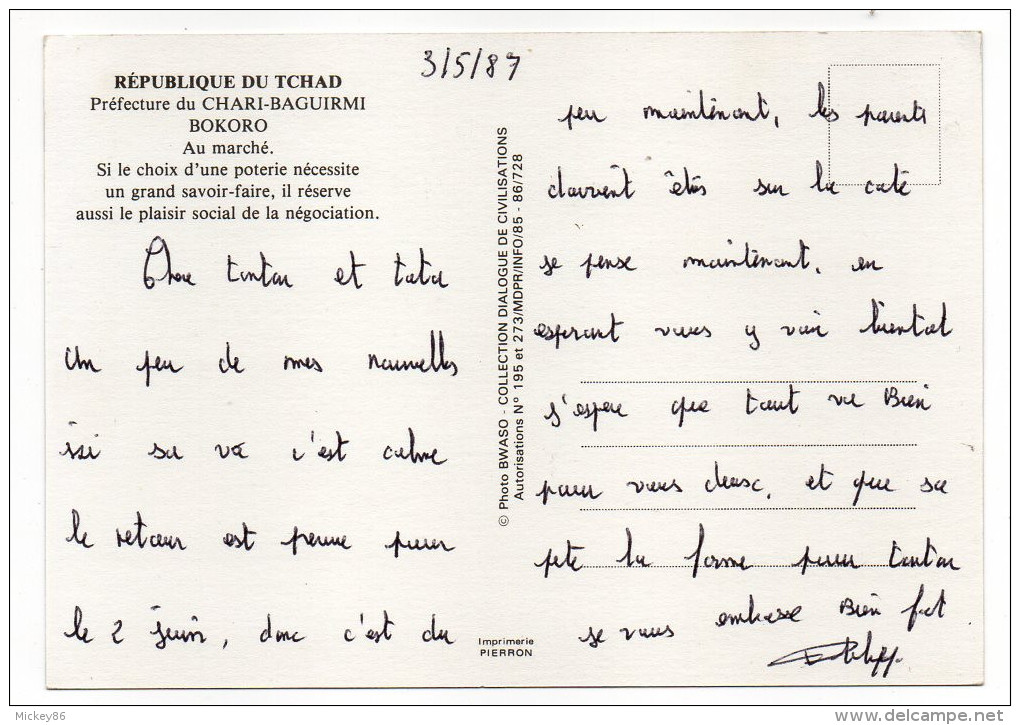 3/5/87
RÉPUBLIQUE DU TCHAD
Préfecture du CHARI-BAGUIRMI
BOKORO
Au marché.
Si le choix d'une poterie nécessite
un grand savoir-faire, il réserve
aussi le plaisir social de la négociation.
Chere tonton et tata
un peu de mes nouvelles
issi sa va c'est calme
le retour est prevue pour
le 2 juin, donc c'est du
© Photo BWASO - COLLECTION DIALOGUE DE CIVILISATIONS
Autorisations N° 195 et 273/MDPR/INFO/85 - 86/728
Imprimerie
PIERRON
peu maintenant, les parents
doivent êtês sur la cote
je pense maintenant, en
esperant vous y voir bientot
j'espere que tout va Bien
pour vous deux, et que sa
pete la forme pour tonton
je vous embrasse Bien fort
Philipp.
Mickey86
www.delcampe.net